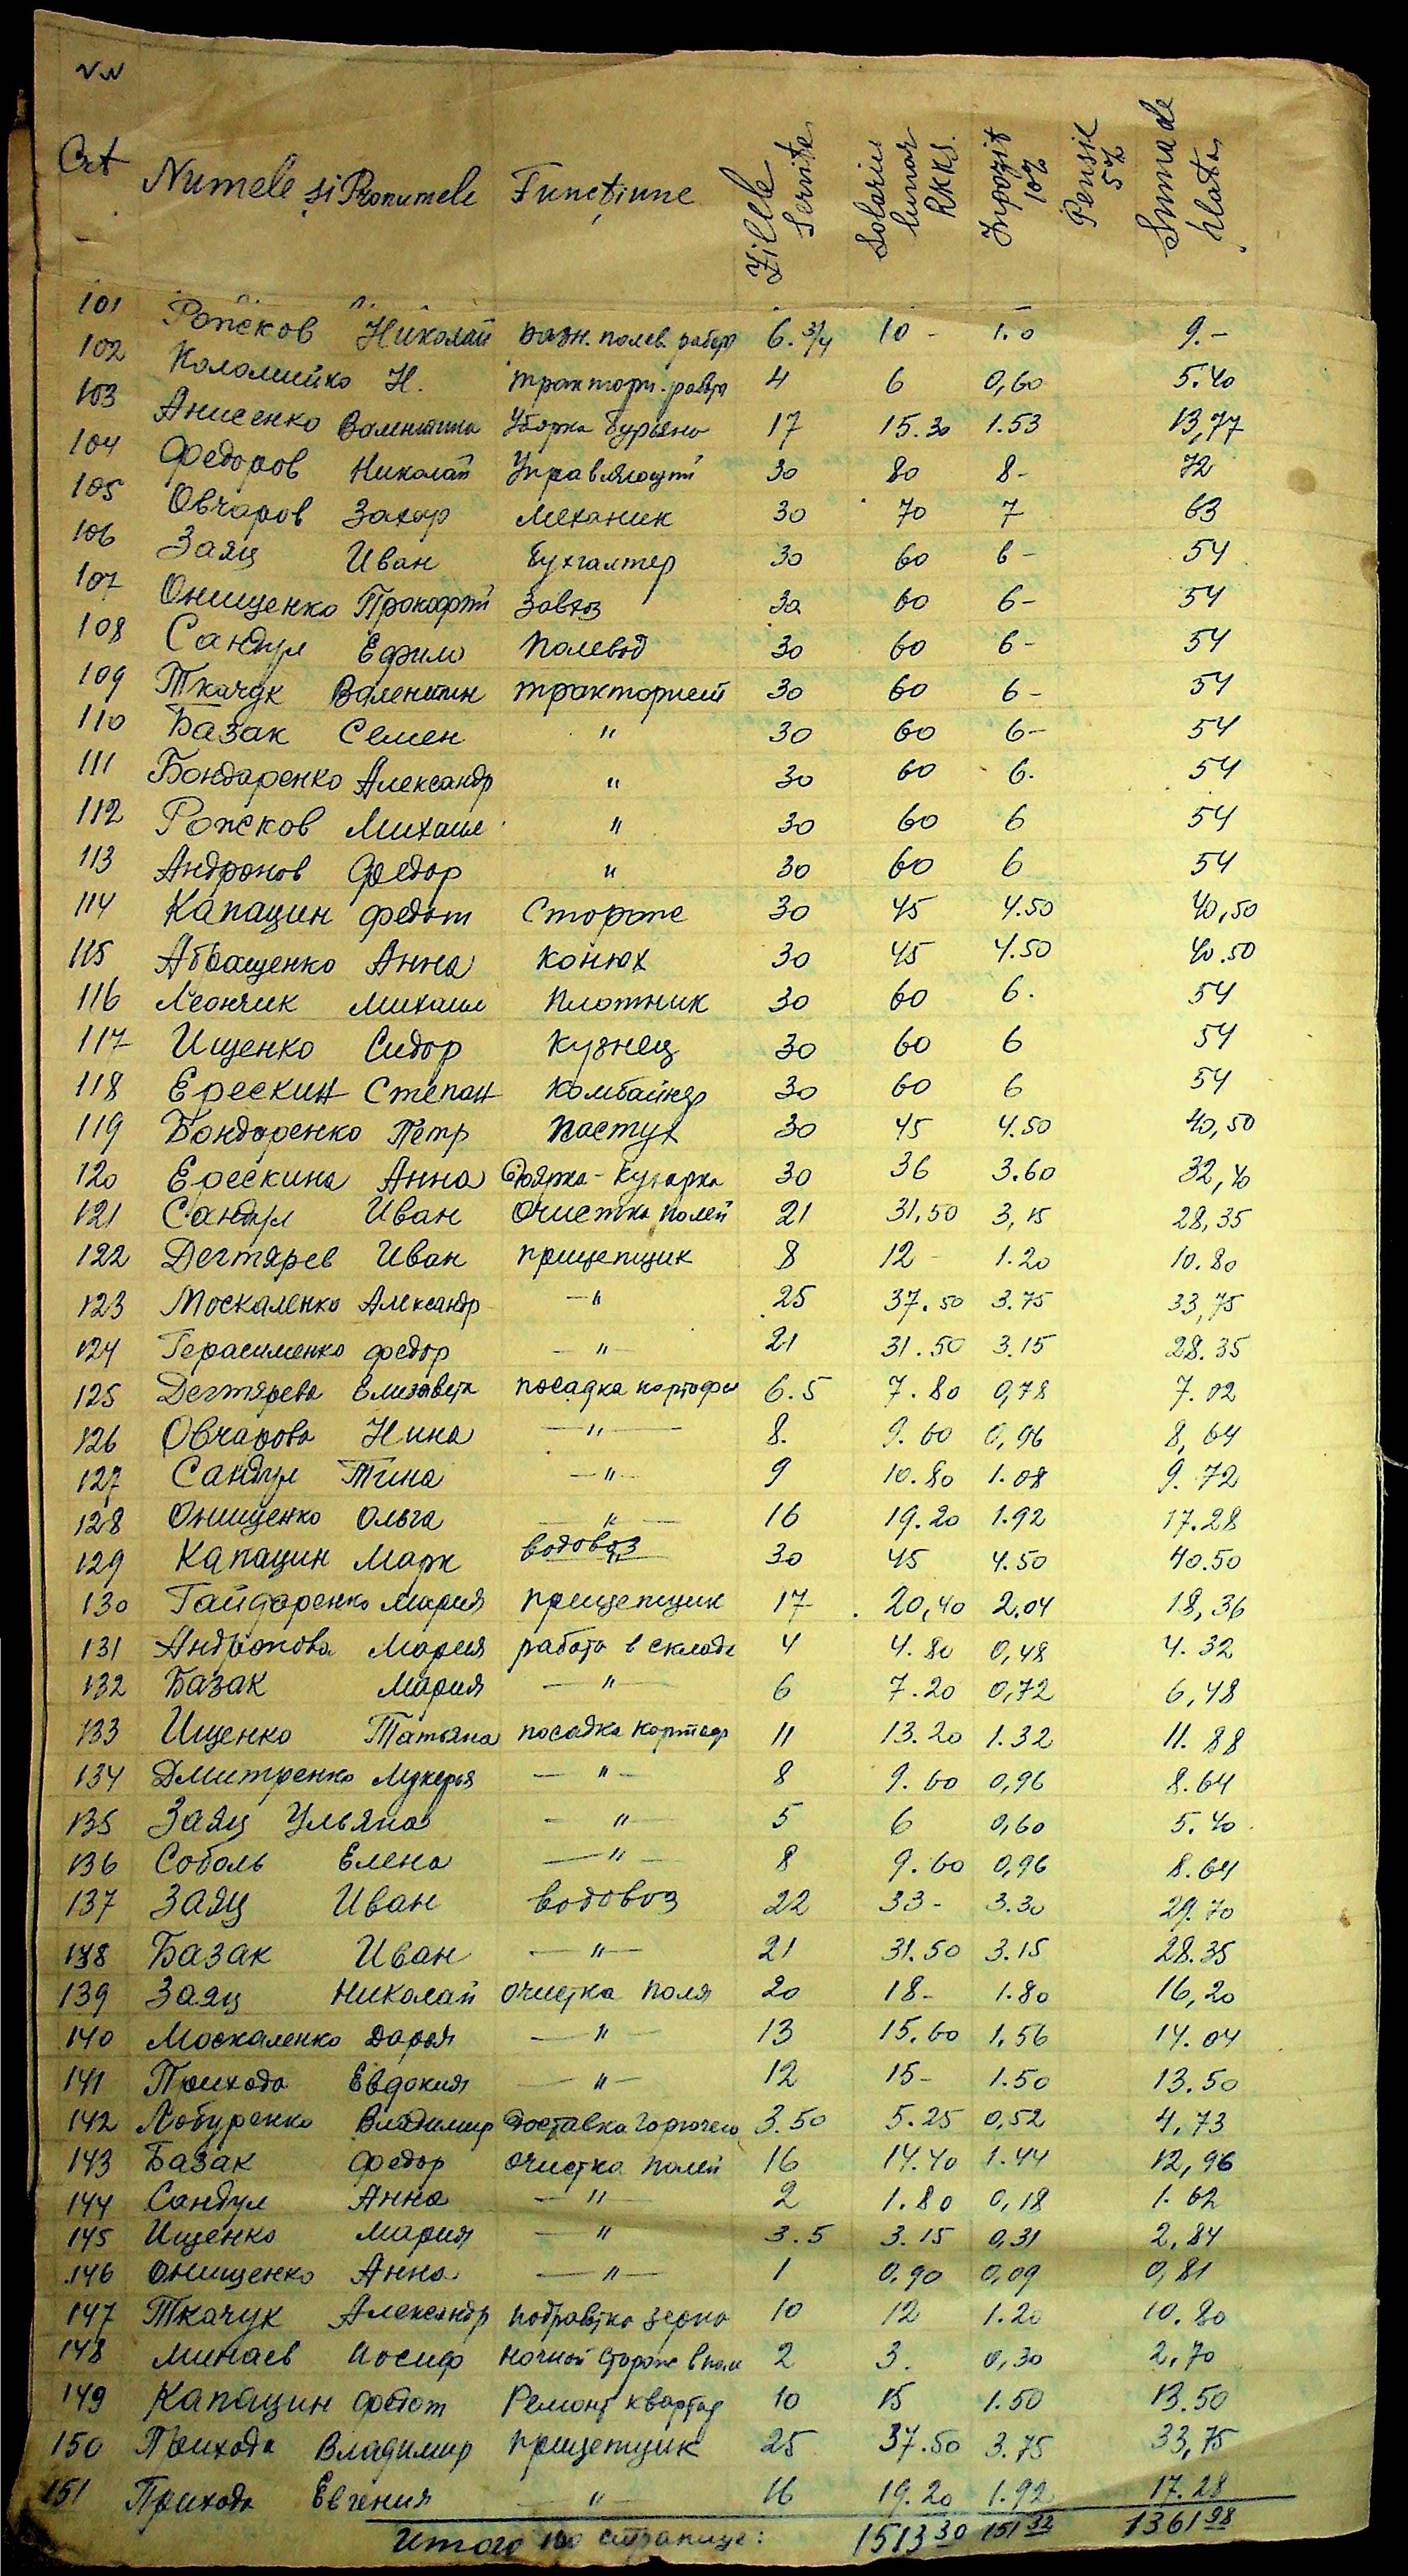 NN
Crt Numele și Pronumele Funcțiune Zilele Servite Solariu lunar RKKS. Inpozit 10% Pensie 5% Suma de plata
101 Рожков Николай разн. полев. работ 6.3/4 10 - 1.0 9.-
102 Коломийко Н. трактори. работа 4 6 0,60 5.40
103 Анисенко Валентина Уборка бурьяна 17 15.30 1.53 13,77
104 Федоров Николай Управляющий 30 80 8- 72
105 Овчаров Захар механик 30 70 7 63
106 Заяц Иван бухгалтер 30 60 6- 54
107 Онищенко Прокофий Завхоз 30 60 6- 54
108 Сандул Ефим полевод 30 60 6- 54
109 Ткачук Валентин тракторист 30 60 6- 54
110 Базак Семен " 30 60 6- 54
111 Бондаренко Александр " 30 60 6. 54
112 Рожков Михаил " 30 60 6 54
113 Андронов Федор " 30 60 6 54
114 Капацин Федот Сторож 30 45 4.50 40,50
115 Абващенко Анна конюх 30 45 4.50 40.50
116 Леончик Михаил плотник 30 60 6. 54
117 Ищенко Сидор кузнец 30 60 6 54
118 Ерескин Степан комбайнер 30 60 6 54
119 Бондаренко Петр пастух 30 45 4.50 40,50
120 Ерескина Анна Доярка-кухарка 30 36 3.60 32,40
121 Сандул Иван Очистка полей 21 31,50 3,15 28,35
122 Дегтярев Иван прицепщик 8 12 - 1.20 10.80
123 Москаленко Александр —"— 25 37.50 3.75 33,75
124 Герасименко Федор —"— 21 31.50 3.15 28.35
125 Дегтярева Елизавета посадка картофел 6.5 7.80 0,78 7.02
126 Овчарова Нина —"— 8. 9.60 0,96 8,64
127 Сандул Тина —"— 9 10.80 1.08 9.72
128 Онищенко Ольга —"— 16 19.20 1.92 17.28
129 Капацин Марк водовоз 30 45 4.50 40.50
130 Гайдаренко Мария прицепщик 17 20,40 2.04 18,36
131 Андронова Мария работа в складе 4 4.80 0,48 4.32
132 Базак Мария —"— 6 7.20 0,72 6,48
133 Ищенко Татьяна посадка картоф 11 13.20 1.32 11.88
134 Дмитренко Лукерья —"— 8 9.60 0,96 8.64
135 Заяц Ульяна —"— 5 6 0,60 5.40
136 Соболь Елена —"— 8 9.60 0,96 8.64
137 Заяц Иван водовоз 22 33- 3.30 29.70
138 Базак Иван —"— 21 31.50 3.15 28.35
139 Заяц Николай очистка поля 20 18- 1.80 16,20
140 Москаленко Дарья —"— 13 15.60 1.56 14.04
141 Приходо Евдокия —"— 12 15- 1.50 13.50
142 Лобуренко Владимир Доставка Горючего 3.50 5.25 0,52 4,73
143 Базак Федор очистка полей 16 14.40 1.44 12,96
144 Сандул Анна —"— 2 1.80 0,18 1.62
145 Ищенко Мария —"— 3.5 3.15 0,31 2,84
146 Онищенко Анна —"— 1 0,90 0,09 0,81
147 Ткачук Александр подработка зерно 10 12 1.20 10.80
148 Минаев Иосиф ночной сторож в поле 2 3. 0,30 2,70
149 Капацин Федот Ремонт квартир 10 15 1.50 13.50
150 Прихода Владимир прицепщик 25 37.50 3.75 33,75
151 Прихода Евгения —"— 16 19.20 1.92 17.28
Итого по странице: 1513 30 151 32 1361 98